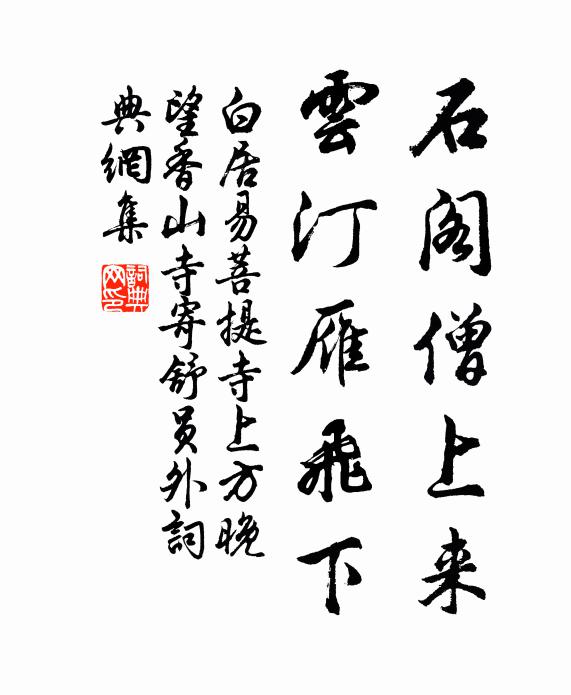 石阁僧上来
雲汀雁飛下
白居易菩提寺上方晚
望香山寺寄舒员外詞
典網集
詞典网印